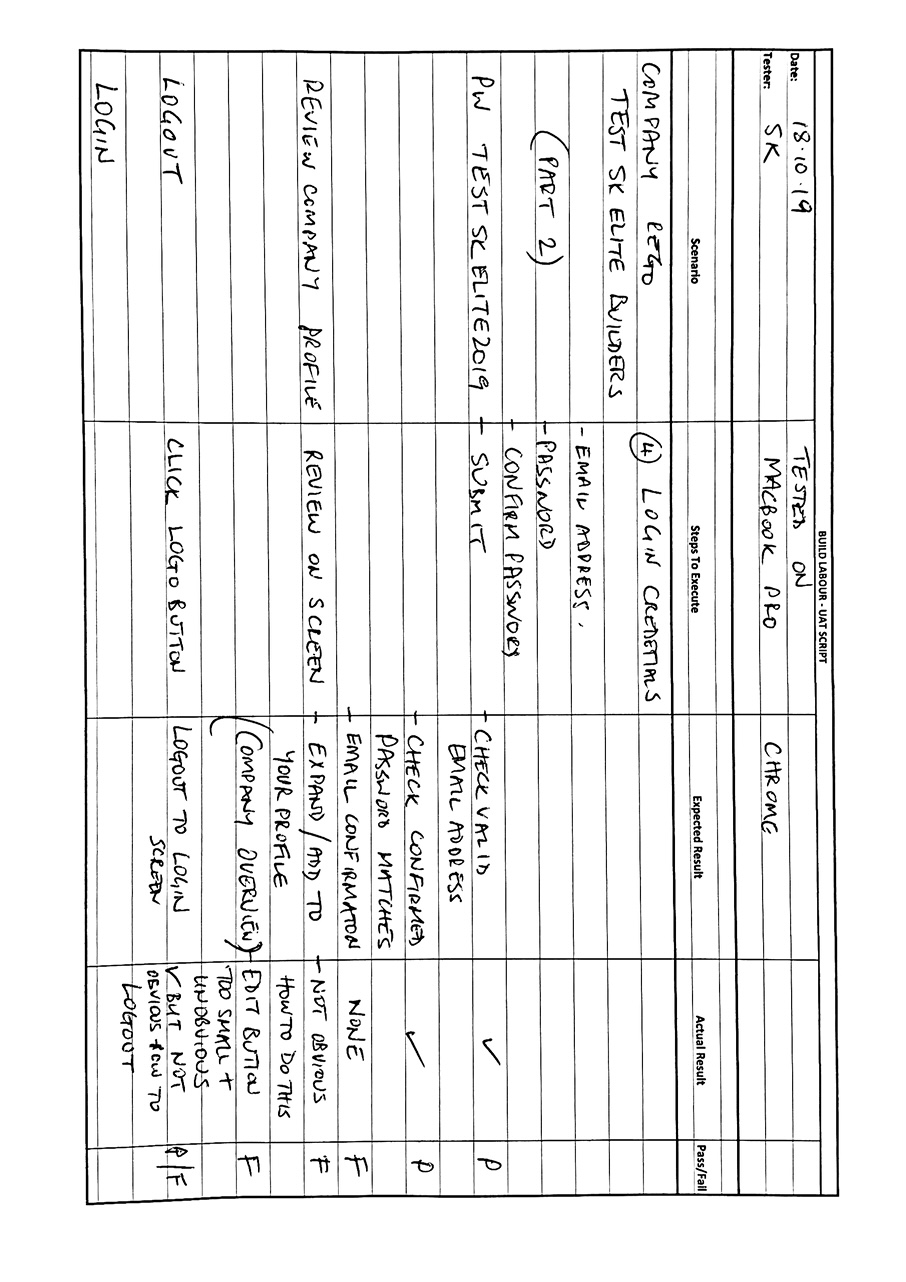 BUILD LABOUR - UAT SCRIPT
Date: 18.10.19 TESTED ON
Tester: SK MACBOOK PRO CHROME
Scenario Steps To Execute Expected Result Actual Result Pass/Fail
COMPANY REGO ④ LOGIN CREDETIALS
TEST SK ELITE BUILDERS
- EMAIL ADDRESS.
(PART 2) - PASSWORD
- CONFIRM PASSWORD
PW TEST SK ELITE2019 - SUBMIT - CHECK VALID ✓ P
EMAIL ADDRESS
- CHECK CONFIRMED ✓ P
PASSWORD MATCHES
- EMAIL CONFIRMATON NONE F
REVIEW COMPANY PROFILE REVIEW ON SCREEN - EXPAND / ADD TO - NOT OBVIOUS F
YOUR PROFILE HOW TO DO THIS
(COMPANY OVERVIEW) - EDIT BUTTON F
TOO SMALL +
UNOBVIOUS
LOGOUT CLICK LOGO BUTTON LOGOUT TO LOGIN ✓ BUT NOT P/F
SCREEN OBVIOUS HOW TO
LOGOUT
LOGIN